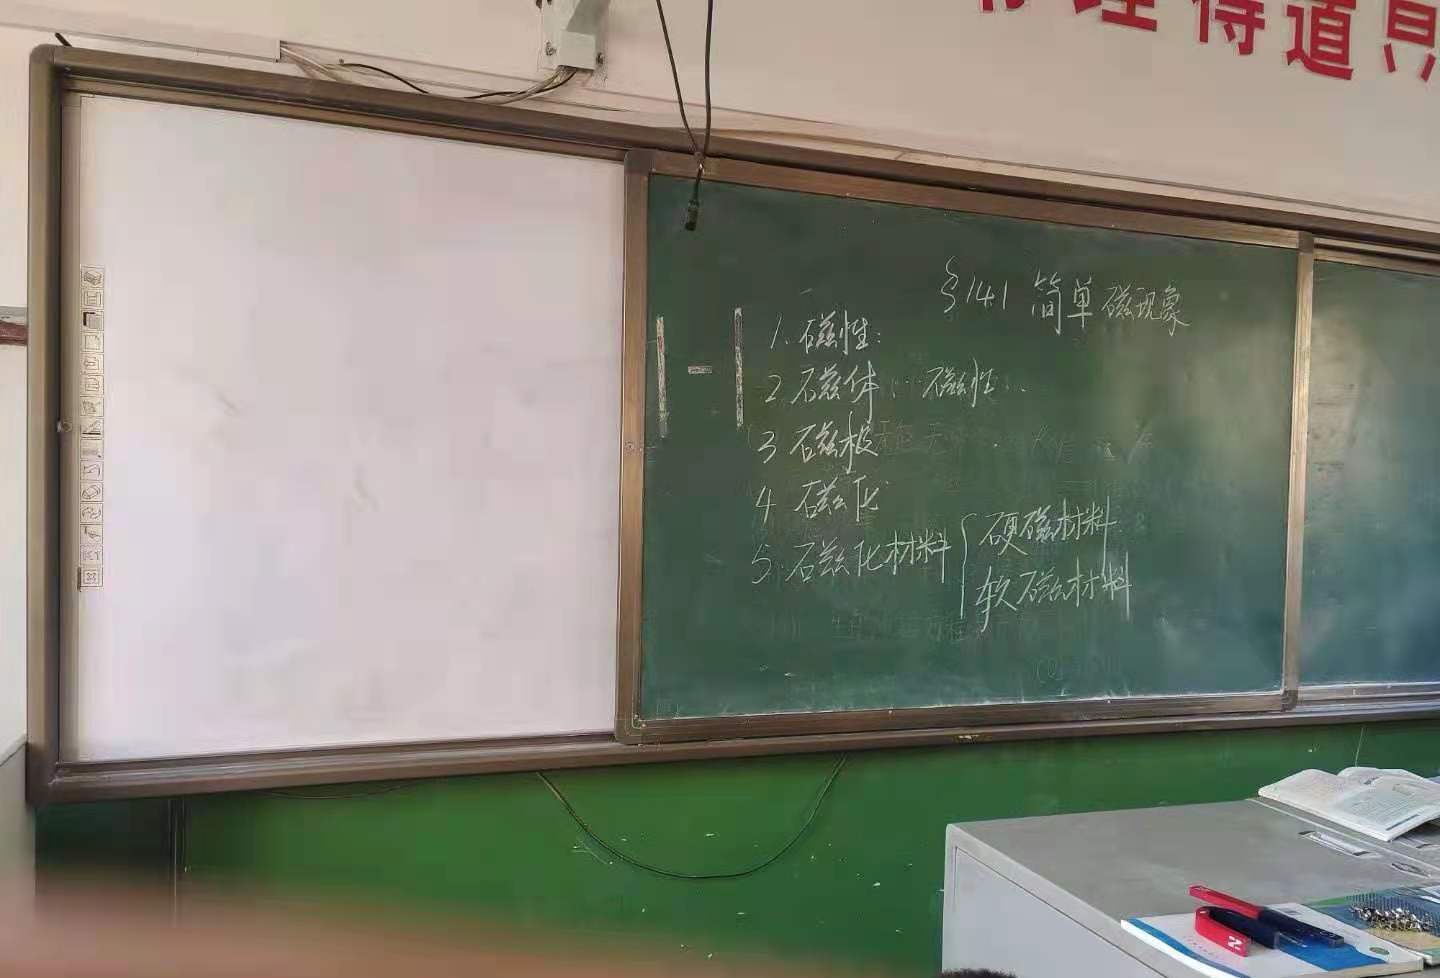 理得道
§14.1 简单磁现象
1. 磁性:
2 磁体: 磁性..
3 磁极
4 磁化
5. 磁化材料 { 硬磁材料
软磁材料
N